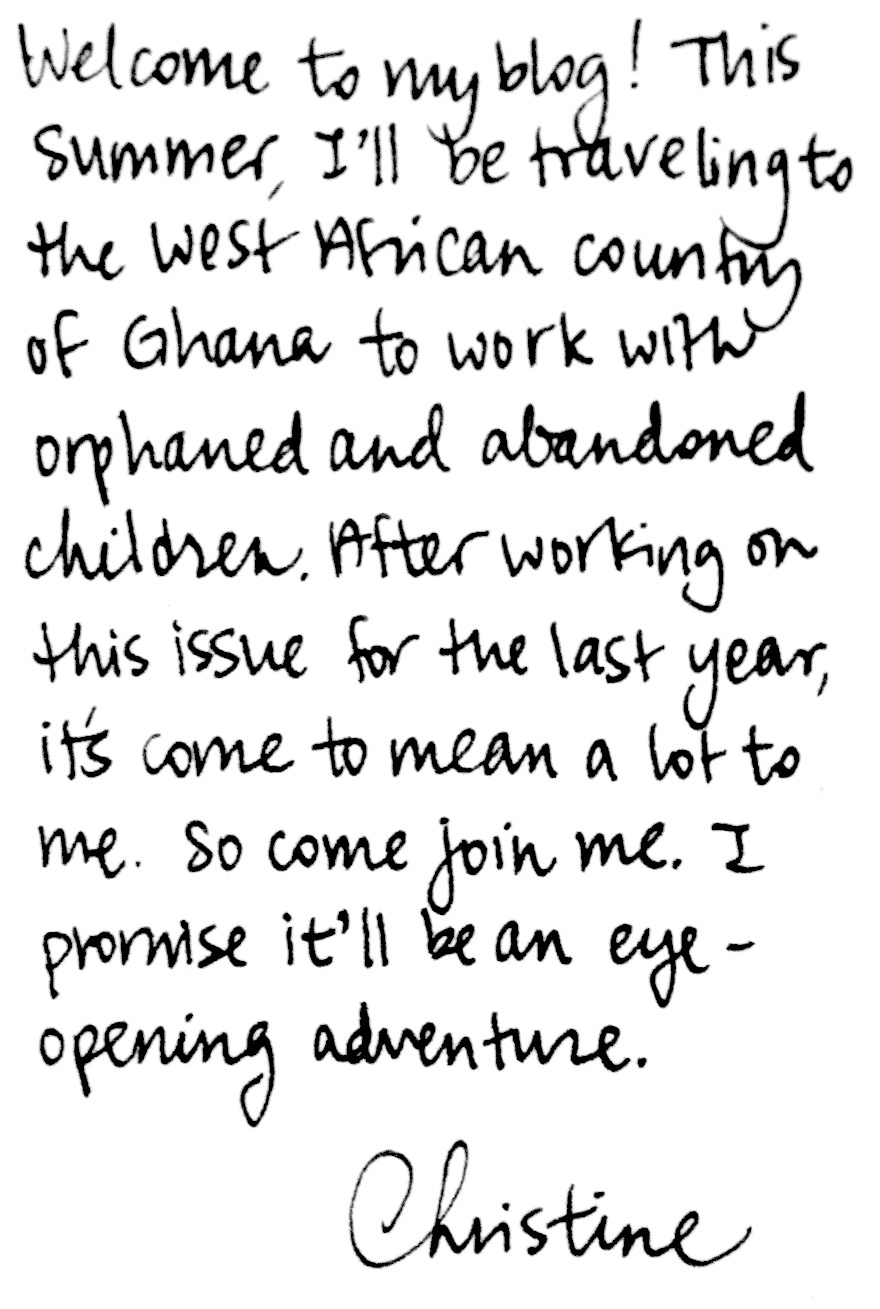 Welcome to my blog! This
summer, I'll be traveling to
the West African country
of Ghana to work with
orphaned and abandoned
children. After working on
this issue for the last year,
it's come to mean a lot to
me. So come join me. I
promise it'll be an eye-
opening adventure.
Christine